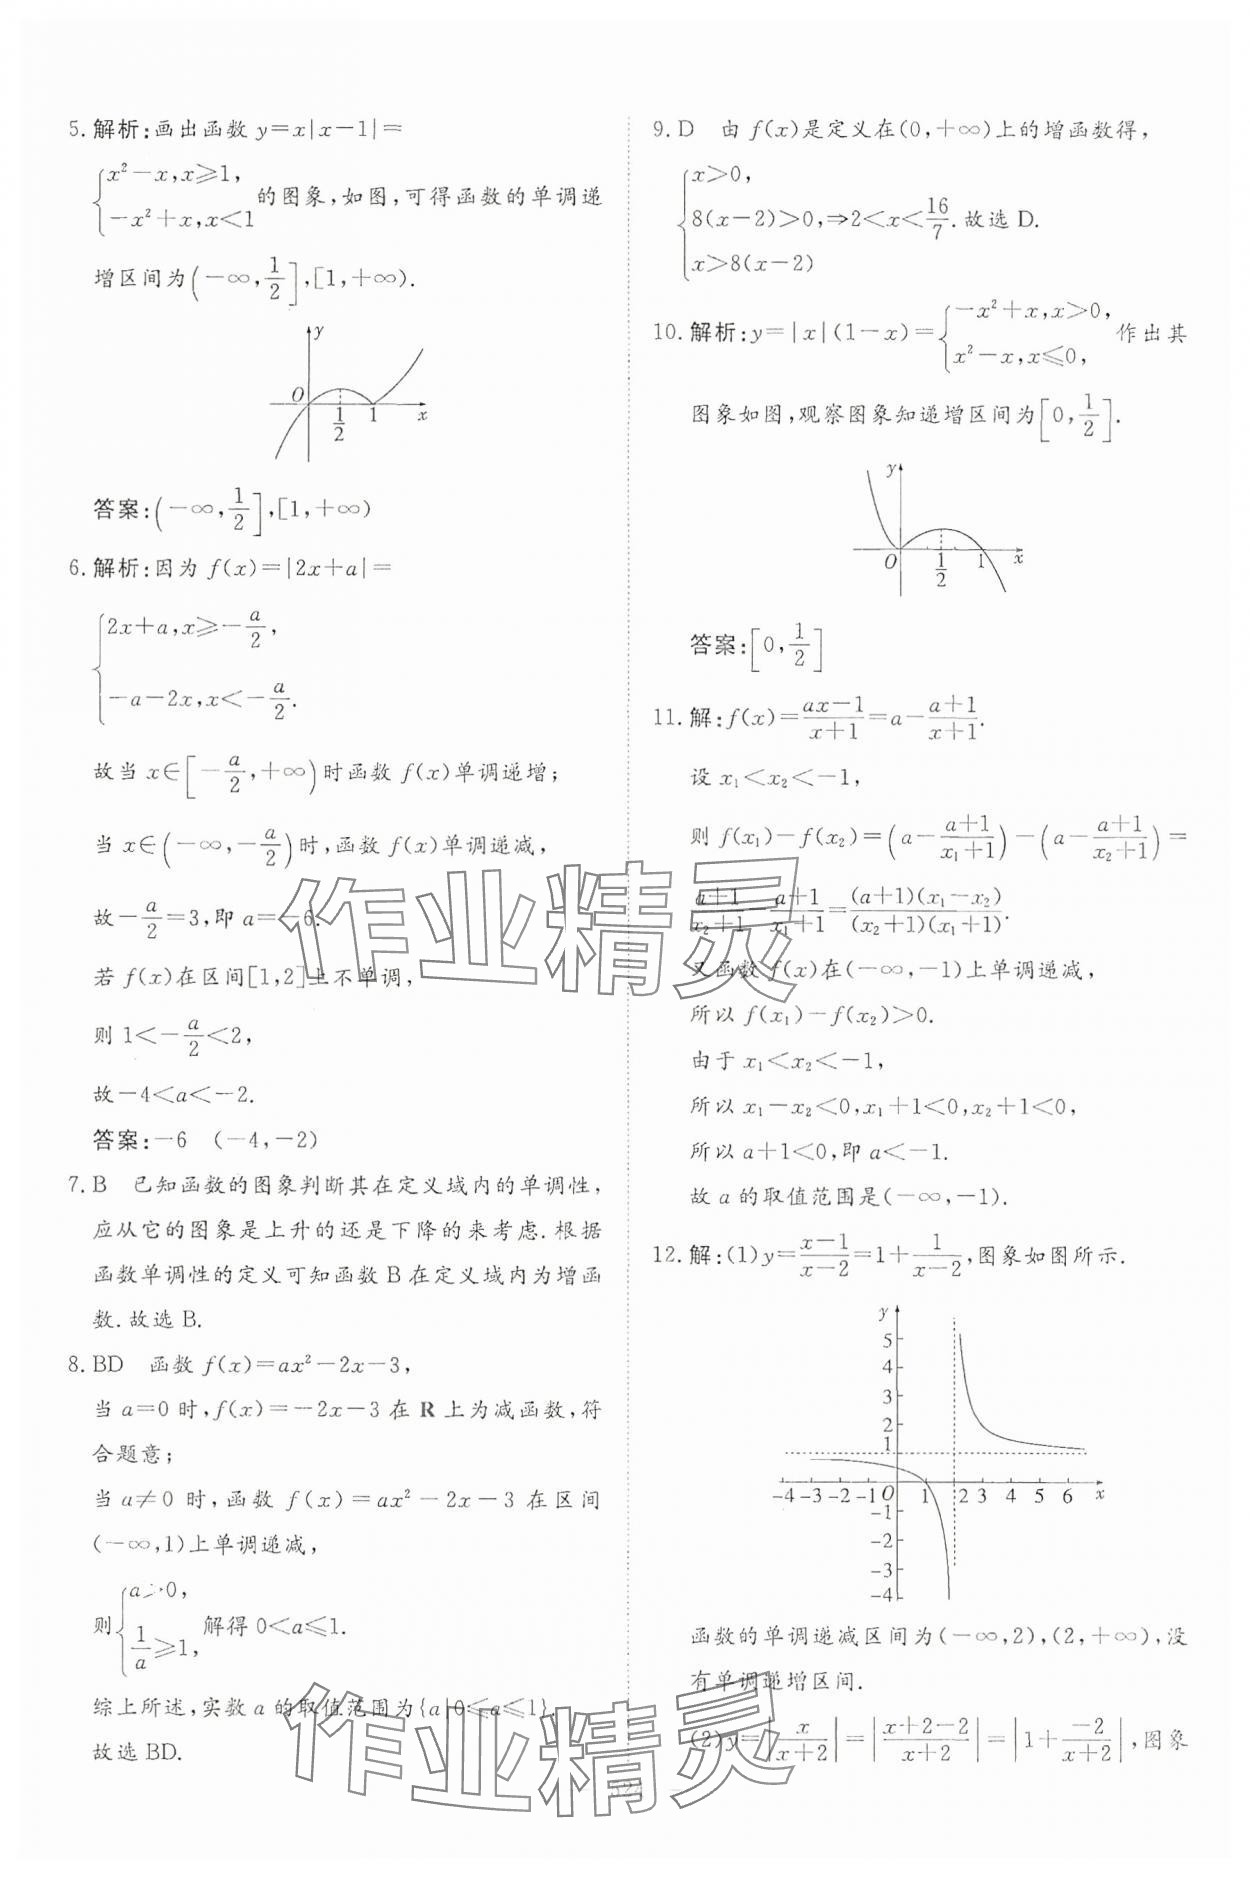 5. 解析:画出函数 y=x|x-1|=
{x²-x,x⩾1,
-x²+x,x<1
的图象,如图,可得函数的单调递
增区间为(-∞,1/2],[1,+∞).
y
O 1/2 1 x
答案:(-∞,1/2],[1,+∞)
6. 解析:因为 f(x)=|2x+a|=
{2x+a,x⩾-a/2,
-a-2x,x<-a/2.
故当 x∈[-a/2,+∞)时函数 f(x)单调递增;
当 x∈(-∞,-a/2)时,函数 f(x)单调递减,
故-a/2=3,即 a=-6.
若 f(x)在区间[1,2]上不单调,
则 1<-a/2<2,
故-4<a<-2.
答案:-6 (-4,-2)
7. B 已知函数的图象判断其在定义域内的单调性,
应从它的图象是上升的还是下降的来考虑.根据
函数单调性的定义可知函数 B 在定义域内为增函
数.故选 B.
8. BD 函数 f(x)=ax²-2x-3,
当 a=0 时,f(x)=-2x-3 在 R 上为减函数,符
合题意;
当 a≠0 时,函数 f(x)=ax²-2x-3 在区间
(-∞,1)上单调递减,
则{a>0,
1/a⩾1,
解得 0<a⩽1.
综上所述,实数 a 的取值范围为{a|0⩽a⩽1}
故选 BD.
9. D 由 f(x)是定义在(0,+∞)上的增函数得,
{x>0,
8(x-2)>0,⇒2<x<16/7.故选 D.
x>8(x-2)
10. 解析:y=|x|(1-x)={-x²+x,x>0,
x²-x,x⩽0,
作出其
图象如图,观察图象知递增区间为[0,1/2].
y
O 1/2 1 x
答案:[0,1/2]
11. 解:f(x)=(ax-1)/(x+1)=a-(a+1)/(x+1).
设 x₁<x₂<-1,
则 f(x₁)-f(x₂)=(a-(a+1)/(x₁+1))-(a-(a+1)/(x₂+1))=
(a+1)/(x₂+1)-(a+1)/(x₁+1)=(a+1)(x₁-x₂)/(x₂+1)(x₁+1).
又函数 f(x)在(-∞,-1)上单调递减,
所以 f(x₁)-f(x₂)>0.
由于 x₁<x₂<-1,
所以 x₁-x₂<0,x₁+1<0,x₂+1<0,
所以 a+1<0,即 a<-1.
故 a 的取值范围是(-∞,-1).
12. 解:(1)y=(x-1)/(x-2)=1+1/(x-2),图象如图所示.
y
5
4
3
2
1
-4 -3 -2 -1 O 1 2 3 4 5 6 x
-1
-2
-3
-4
函数的单调递减区间为(-∞,2),(2,+∞),没
有单调递增区间.
(2)y=|x/(x+2)|=|(x+2-2)/(x+2)|=|1+(-2)/(x+2)|,图象
作业精灵
作业精灵